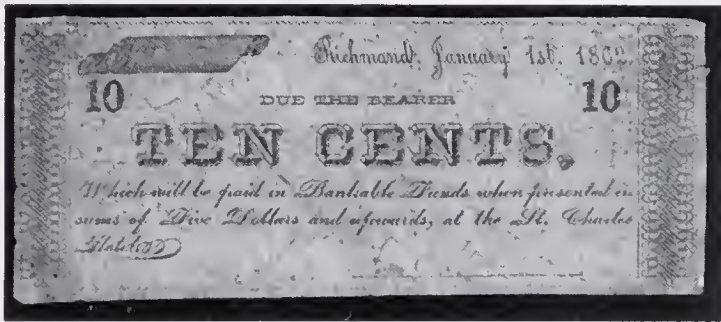 Richmond, January 1st. 1862.
10 DUE THE BEARER 10
TEN CENTS,
Which will be paid in Bankable Funds when presented in
sums of Five Dollars and upwards, at the St. Charles
Hotel.